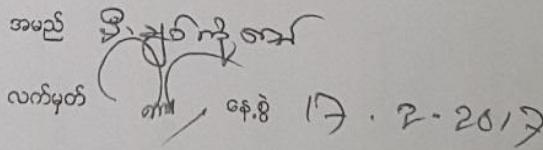 အမည် ဦးချစ်ကိုကော်
လက်မှတ် နေ့စွဲ 17.2.2017